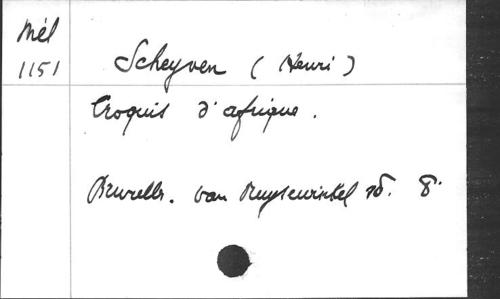 Mél
1151
Scheyven (Henri)
Croquis d'afrique.
Bruxelles. van Ruysewinkel sd. 8°